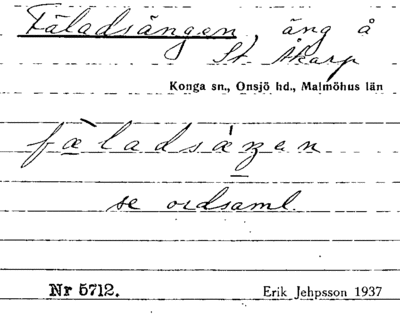 Fäladsängen, äng å
St. Åkarp
Konga sn., Onsjö hd., Malmöhus län
fæ̀ladsáŋen
se ordsaml.
Nr 5712.
Erik Jehpsson 1937